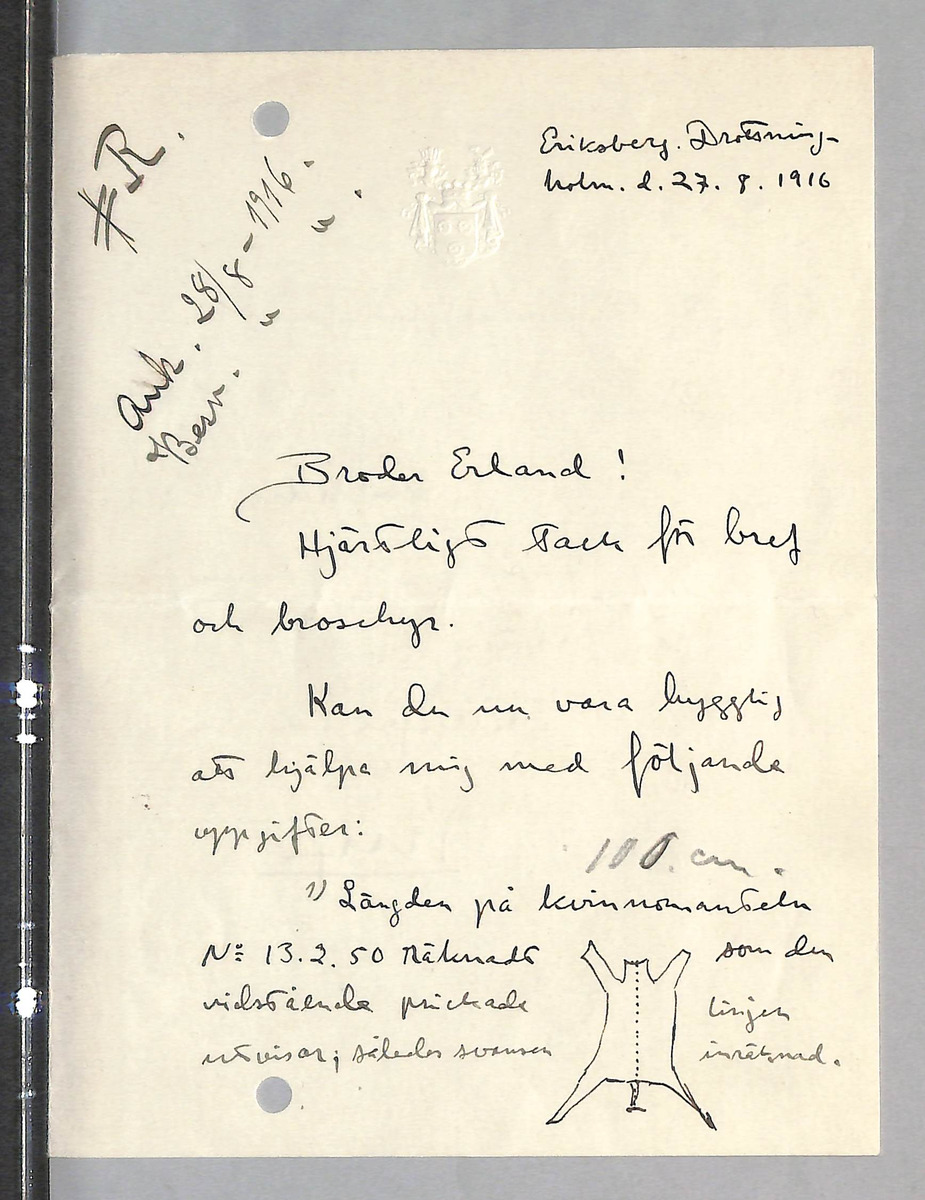 #R.
Ank. 28/8-1916.
Besv. " " .
Eriksberg. Drottning-
holm. d. 27. 8. 1916
Broder Erland!
Hjärtligt tack för bref
och broschyr.
Kan du nu vara hygglig
att hjälpa mig med följande
uppgifter:
100. cm.
1) Längden på kvinnomanteln
No 13.2.50 räknadt som den
vidstående prickade linjen
utvisar; således svansen inräknad.